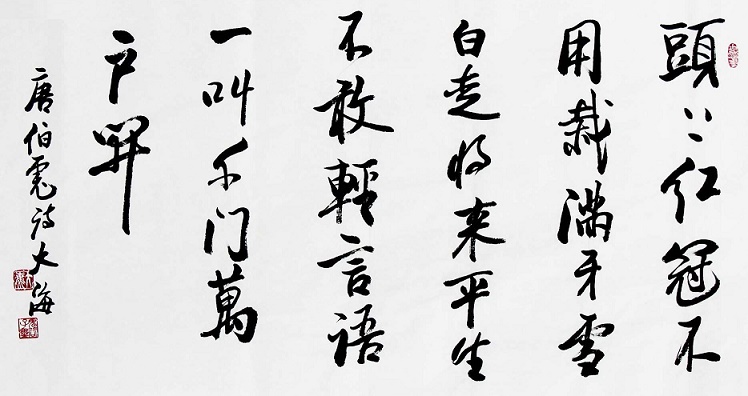 頭上红冠不
用裁满身雪
白走将来平生
不敢輕言語
一叫千门萬
户開
唐伯虎诗大海